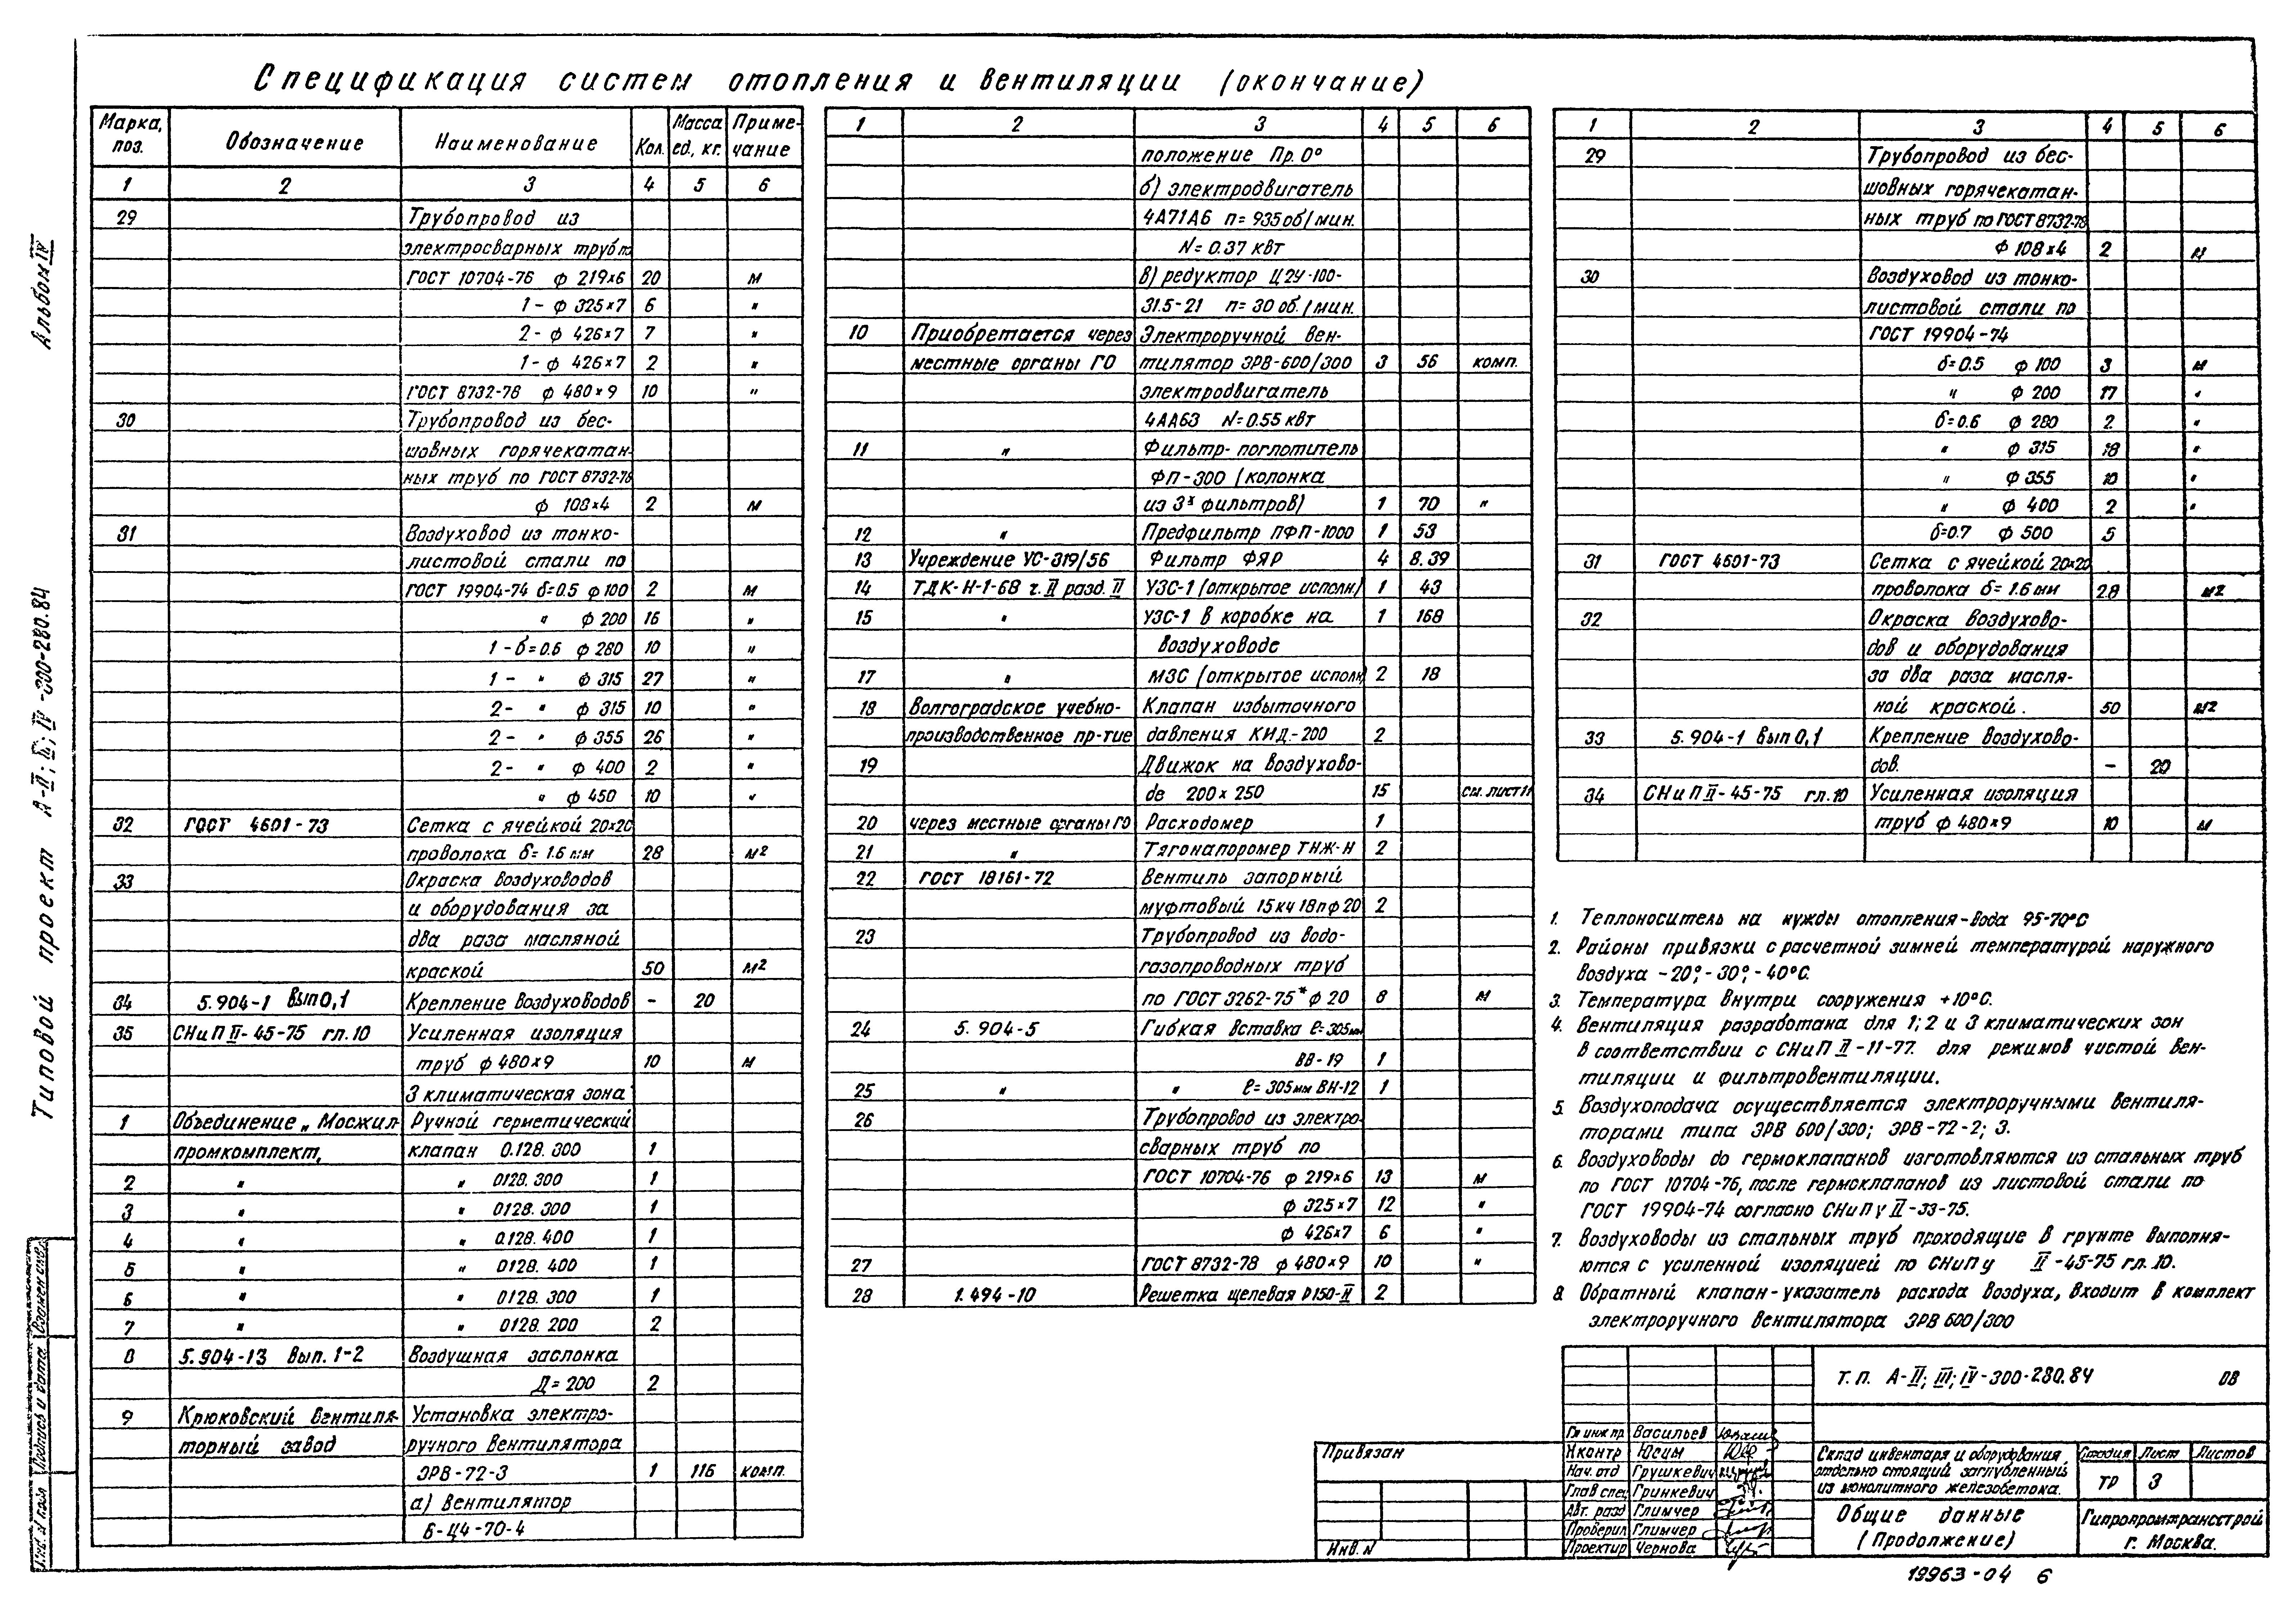 Спецификация систем отопления и вентиляции (окончание)
Марка, поз. Обозначение Наименование Кол. Масса ед., кг. Примечание
1 2 3 4 5 6
29 Трубопровод из
электросварных труб по
ГОСТ 10704-76 ф 219×6 20 м
1- ф 325×7 6 "
2- ф 426×7 7 "
1- ф 426×7 2 "
ГОСТ 8732-78 ф 480×9 10 "
30 Трубопровод из бес-
шовных горячекатан-
ных труб по ГОСТ 8732-78
ф 108×4 2 м
31 Воздуховод из тонко-
листовой стали по
ГОСТ 19904-74 δ=0.5 ф 100 2 м
" ф 200 16 "
1-δ=0.6 ф 280 10 "
1- " ф 315 27 "
2- " ф 315 10 "
2- " ф 355 26 "
2- " ф 400 2 "
" ф 450 10 "
32 ГОСТ 4601-73 Сетка с ячейкой 20×20
проволока δ= 1.6 мм 28 м2
33 Окраска воздуховодов
и оборудования за
два раза масляной
краской 50 м2
34 5.904-1 вып 0,1 Крепление воздуховодов - 20
35 СНиП II-45-75 гл.10 Усиленная изоляция
труб ф 480×9 10 м
3 климатическая зона
1 Объединение „Мосжил- Ручной герметический
промкомплект„ клапан 0.128.300 1
2 " " 0128.300 1
3 " " 0128.300 1
4 " " 0.128.400 1
5 " " 0128.400 1
6 " " 0128.300 1
7 " " 0128.200 2
8 5.904-13 вып. 1-2 Воздушная заслонка
Д=200 2
9 Крюковский вентиля- Установка электро-
торный завод ручного вентилятора
ЭРВ-72-3 1 116 комп.
а) вентилятор
Б-Ц4-70-4
1 2 3 4 5 6
положение Пр. 0°
б) электродвигатель
4А71А6 п= 935 об/мин.
N= 0.37 квт
в) редуктор Ц2У-100-
31.5-21 п= 30 об./мин.
10 Приобретается через Электроручной вен-
местные органы ГО тилятор ЭРВ-600/300 3 56 комп.
электродвигатель
4АА63 N=0.55 квт
11 " Фильтр-поглотитель
ФП-300 (колонка
из 3х фильтров) 1 70 "
12 " Предфильтр ПФП-1000 1 53
13 Учреждение УС-319/56 Фильтр ФЯР 4 8.39
14 ТДК-Н-1-68 ч. II разд. II УЗС-1 (открытое исполн.) 1 43
15 " УЗС-1 в коробке на 1 168
воздуховоде
17 " МЗС (открытое исполн. 2 18
18 Волгоградское учебно- Клапан избыточного
производственное пр-тие давления КИД-200 2
19 Движок на воздухово-
де 200×250 15 см. лист 11
20 через местные органы ГО Расходомер 1
21 " Тягонапоромер ТНЖ-Н 2
22 ГОСТ 18161-72 Вентиль запорный
муфтовый 15кч 18п ф 20 2
23 Трубопровод из водо-
газопроводных труб
по ГОСТ 3262-75* ф 20 8 м
24 5.904-5 Гибкая вставка ℓ=305мм
ВВ-19 1
25 " " ℓ=305мм ВН-12 1
26 Трубопровод из электро-
сварных труб по
ГОСТ 10704-76 ф 219×6 13 м
ф 325×7 12 "
ф 426×7 6 "
27 ГОСТ 8732-78 ф 480×9 10 "
28 1.494-10 Решетка щелевая Р150-II 2
1 2 3 4 5 6
29 Трубопровод из бес-
шовных горячекатан-
ных труб по ГОСТ 8732-78
ф 108×4 2 м
30 Воздуховод из тонко-
листовой стали по
ГОСТ 19904-74
δ=0.5 ф 100 3 м
" ф 200 17 "
δ=0.6 ф 280 2 "
" ф 315 18 "
" ф 355 10 "
" ф 400 2 "
δ=0.7 ф 500 5
31 ГОСТ 4601-73 Сетка с ячейкой 20×20
проволока δ= 1.6 мм 28 м2
32 Окраска воздухово-
дов и оборудования
за два раза масля-
ной краской. 50 м2
33 5.904-1 вып 0,1 Крепление воздухово-
дов. - 20
34 СНиП II-45-75 гл.10 Усиленная изоляция
труб ф 480×9 10 м
1. Теплоноситель на нужды отопления-вода 95-70°С
2. Районы привязки с расчетной зимней температурой наружного
воздуха -20°, -30°, -40°С.
3. Температура внутри сооружения +10°С.
4. Вентиляция разработана для 1; 2 и 3 климатических зон
в соответствии с СНиП II-11-77. для режимов чистой вен-
тиляции и фильтровентиляции.
5. Воздухоподача осуществляется электроручными вентиля-
торами типа ЭРВ 600/300; ЭРВ-72-2; 3.
6. Воздуховоды до гермоклапанов изготовляются из стальных труб
по ГОСТ 10704-76, после гермоклапанов из листовой стали по
ГОСТ 19904-74 согласно СНиПу II-33-75.
7. Воздуховоды из стальных труб проходящие в грунте выполня-
ются с усиленной изоляцией по СНиПу II-45-75 гл.10.
8. Обратный клапан-указатель расхода воздуха, входит в комплект
электроручного вентилятора ЭРВ 600/300
Т.П. А-II; III; IV-300-280.84 ОВ
Гл инж пр. Васильев
Н контр Юсим
Нач. отд Грушкевич
Глав спец Гринкевич
Авт. разд Глимчер
Проверил Глимчер
Проектир Чернова
Склад инвентаря и оборудования,
отдельно стоящий заглубленный
из монолитного железобетона.
Стадия Лист Листов
ТР 3
Общие данные
(Продолжение)
Гипропромтрансстрой
г. Москва.
Привязан
Инв. N
19963-04 6
Альбом IV
Типовой проект А-II; III; IV-300-280.84
Взамен инв.
Подпись и дата
Инв. N подл